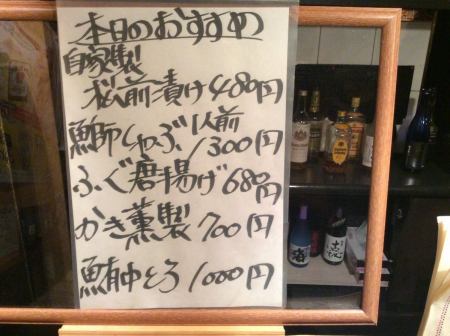 本日のおすすめ
自家製
松前漬け 480円
鰤しゃぶ 1人前
1300円
ふぐ唐揚げ 680円
かき薫製 700円
鮪中とろ 1000円